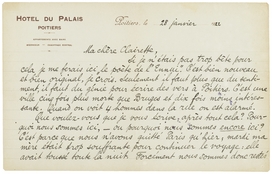 HOTEL DU PALAIS
POITIERS
Poitiers, le 28 janvier
Ma chère Clairette,
Si je n'étais pas trop bête pour
cela, je me ferais ici, le poète de l'Ennui. C'est bien nouveau
et bien original, je crois. Seulement il faut plus que du senti-
ment, il faut du génie pour écrire des vers à Poitiers. C'est une
ville cinq fois plus morte que Bruges et dix fois moins intéres-
sante. Quand on voit 4 hommes dans la rue on est alarmé.
Que voulez-vous que je vous écrive, après tout cela? Pour-
quoi nous sommes ici, — ou pourquoi nous sommes encore ici?
C'est parce que nous n'avons quitté Paris qu'hier, mardi, ma
mère était trop souffrante pour continuer le voyage; elle
avait toussé toute la nuit. Forcément nous sommes donc restés